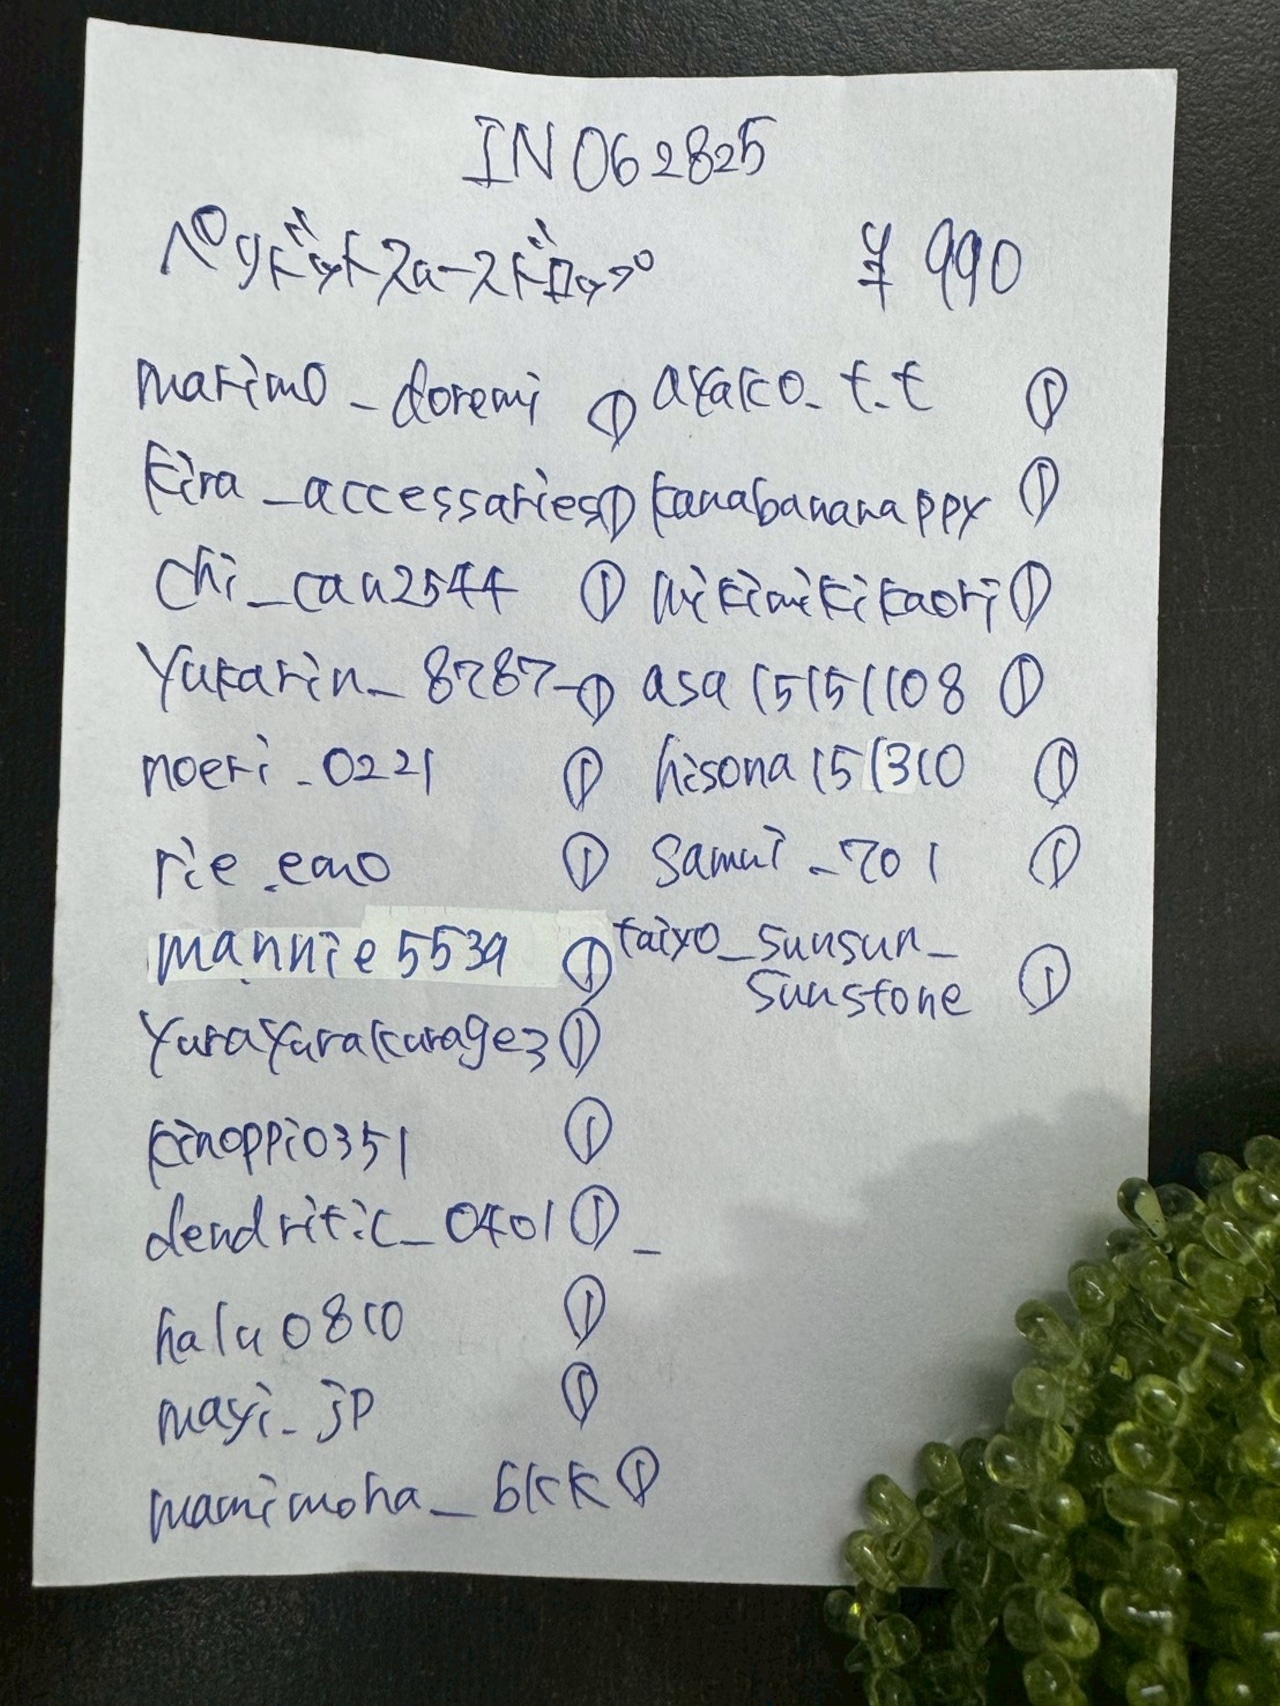 IN062825
ペリドットスムースドロップ ¥990
marimo_doremi ①
kira_accessaries ①
chi_cau2544 ①
yukarin_8787_ ①
noeri_0221 ①
rie.emo ①
mannie5539 ①
yurayurakurage3 ①
kinoppio351 ①
dendritic_0401 ① _
halu0810 ①
mayi_jp ①
mamimoha_bkk ①
ayako_t.t ①
kanabananappy ①
mikimikikaori ①
asa15151108 ①
hisona151310 ①
samui_701 ①
taiyo_sunsun_
sunstone ①